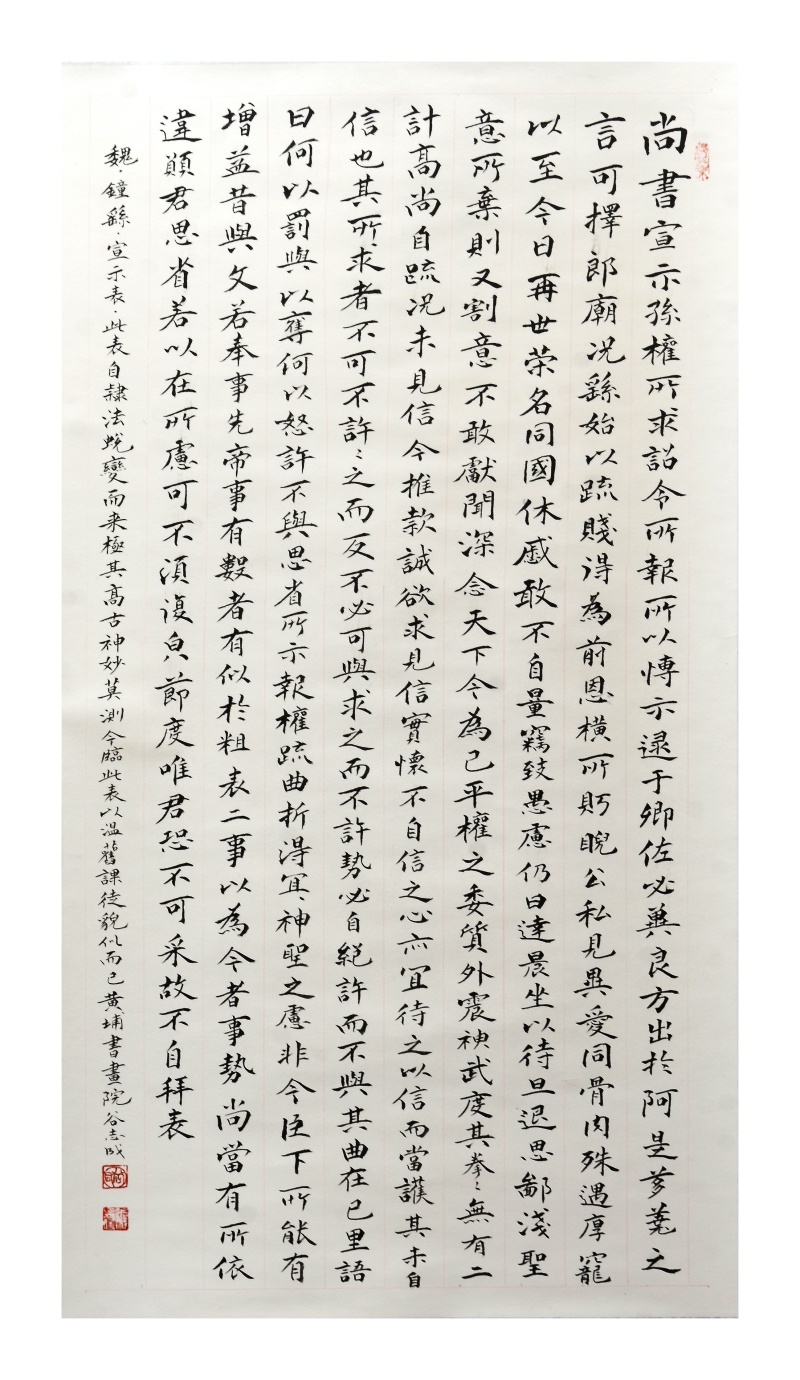 尚書宣示孫權所求詔令所報所以博示逮于卿佐必冀良方出於阿是芻蕘之
言可擇郎廟況繇始以疏賤得為前恩橫所眄睨公私見異愛同骨肉殊遇厚寵
以至今日再世荣名同國休慼敢不自量竊致愚慮仍日達晨坐以待旦退思鄙淺聖
意所棄則又割意不敢獻聞深念天下今為已平權之委質外震神武度其拳〻無有二
計高尚自疏况未見信今推款誠欲求見信實懷不自信之心亦宜待之以信而當護其未自
信也其所求者不可不許〻之而反不必可與求之而不許勢必自絕許而不與其曲在已里語
曰何以罰與以奪何以怒許不與思省所示報權疏曲折得宜神聖之慮非今臣下所能有
增益昔與文若奉事先帝事有數者有似於粗表二事以為今者事勢尚當有所依
違願君思省若以在所慮可不須復皃節度唯君恐不可采故不自拜表
魏·鐘繇·宣示表·此表自隸法蛻變而来極其高古神妙莫測今臨此表以温舊課徒貌似而已黄埔書畫院谷志成